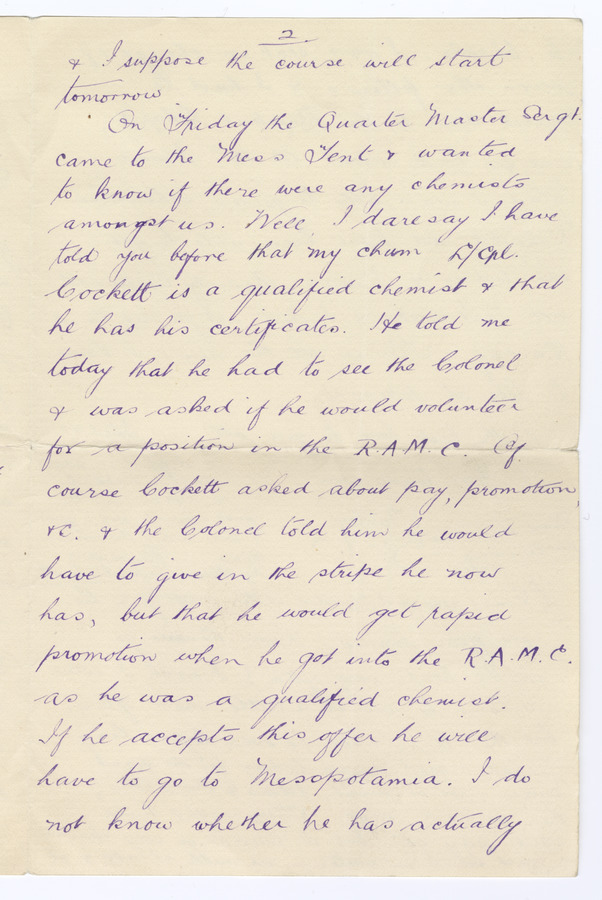 2
& I suppose the course will start
tomorrow.
On Friday the Quarter Master Sergt.
came to the Mess Tent & wanted
to know if there were any chemists
amongst us. Well, I daresay I have
told you before that my chum L/Cpl.
Cockett is a qualified chemist & that
he has his certificates. He told me
today that he had to see the Colonel
& was asked if he would volunteer
for a position in the R.A.M.C. Of
course Cockett asked about pay, promotion,
&c. & the Colonel told him he would
have to give in the stripe he now
has, but that he would get rapid
promotion when he got into the R.A.M.C.
as he was a qualified chemist.
If he accepts this offer he will
have to go to Mesopotamia. I do
not know whether he has actually